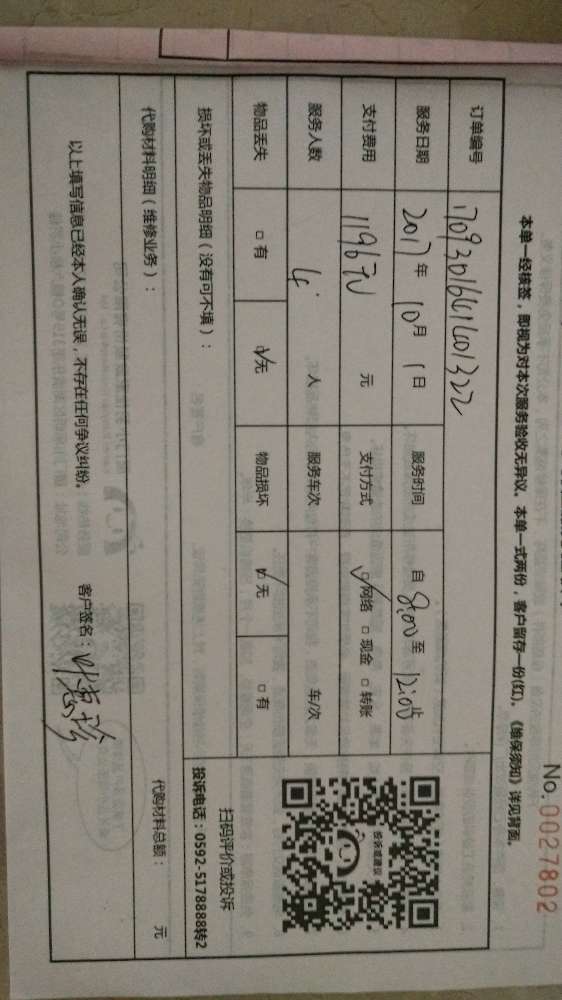 No. 0027802
本单一经核签，即视为对本次服务验收无异议。本单一式两份，客户留存一份(红)。《维保须知》详见背面。
订单编号
服务日期 2017年 10月 1日 服务时间 自 8:00 至 12:00
支付费用 1196元 元 支付方式 ☑网络 □现金 □转账
服务人数 4 人 服务车次 车/次
物品丢失 □有 ☑无 物品损坏 ☑无 □有
损坏或丢失物品明细（没有可不填）：
投诉或建议
扫码评价或投诉
投诉电话：0592-5178888转2
代购材料明细（维修业务）： 代购材料总额： 元
以上填写信息已经本人确认无误，不存在任何争议纠纷。 客户签名：